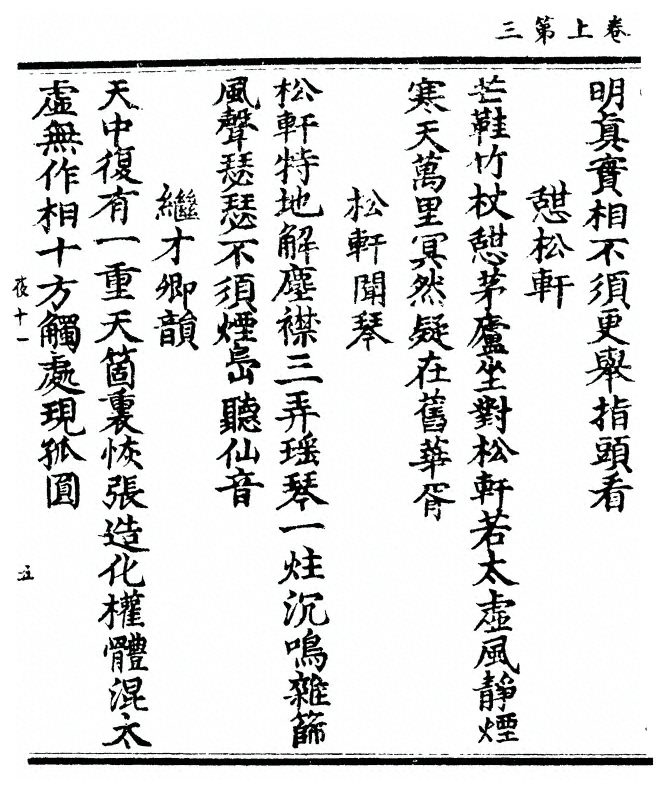 卷上第三
明真實相不須更舉指頭看
憇松軒
芒鞋竹杖憇茅廬坐對松軒若太虛風靜煙
寒天萬里冥然疑在舊華胥
松軒聞琴
松軒特地解塵襟三弄瑶琴一炷沉鳴雜篩
風聲瑟瑟不須煙島聽仙音
繼才卿韻
天中復有一重天箇裏恢張造化權體混太
虛無作相十方觸處現孤圓
夜十一
五